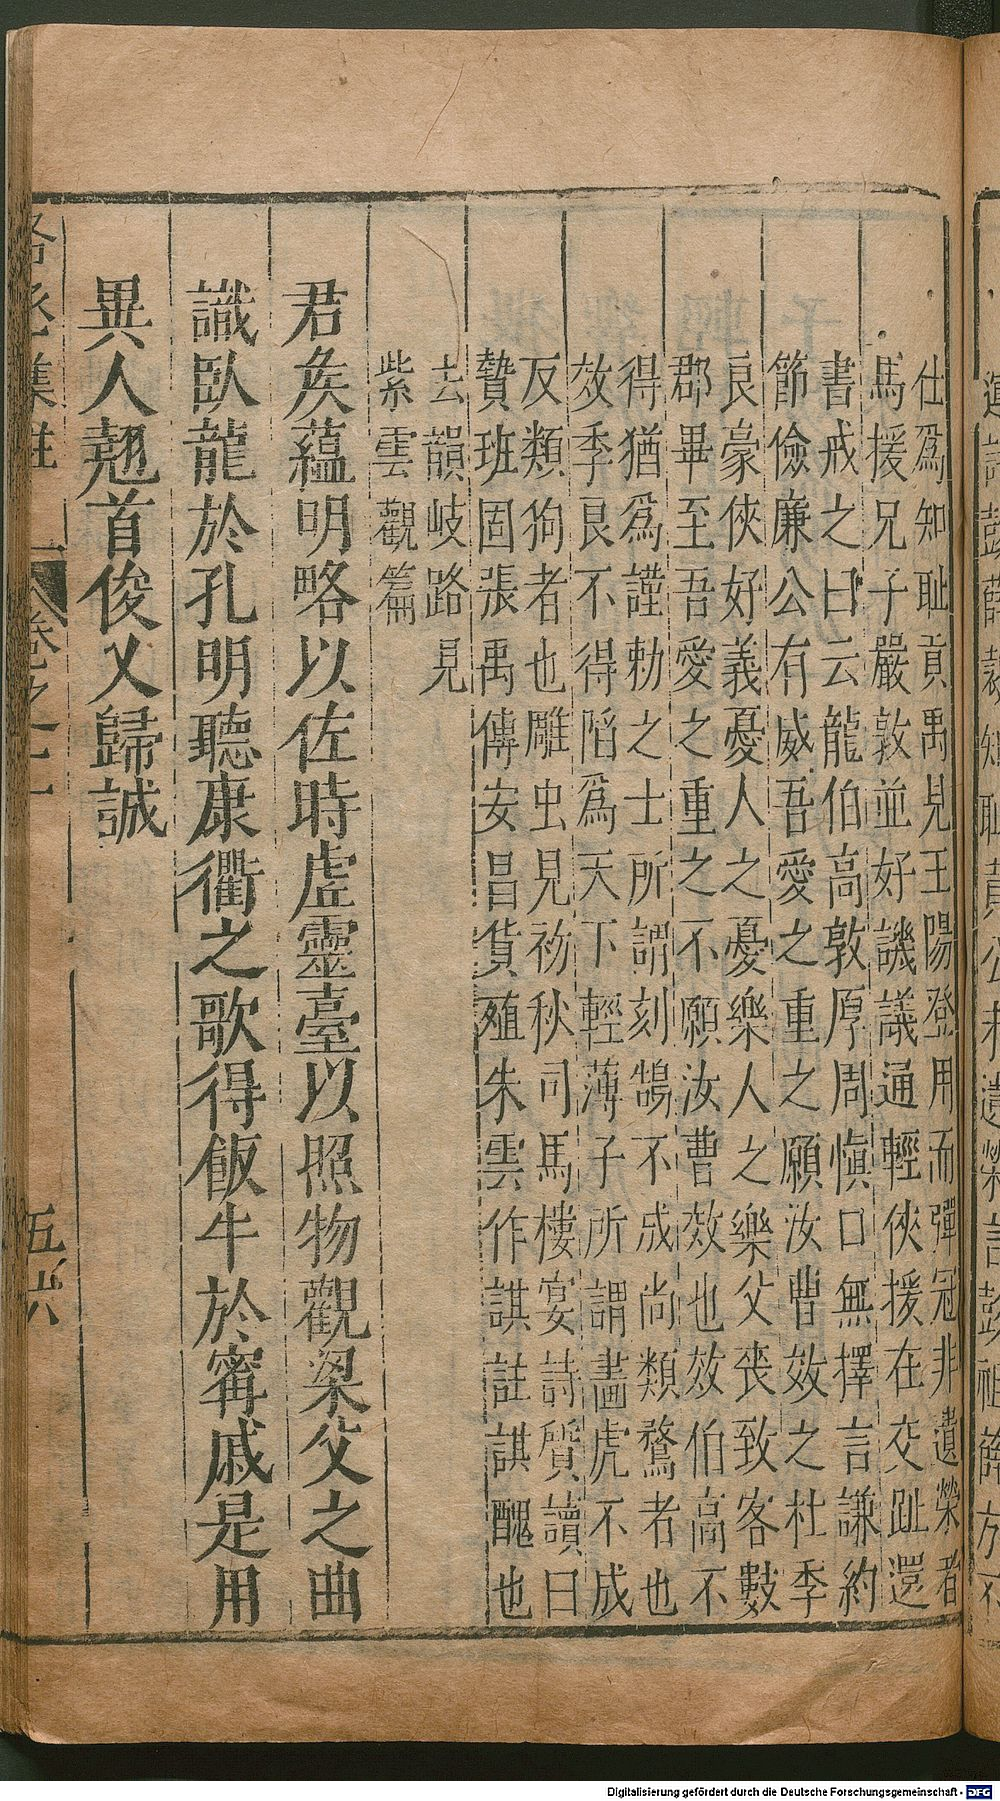 仕爲知耻貢禹見王陽登用而彈冠非遺榮者
馬援兄子嚴敦並好譏議通輕俠援在交趾還
書戒之曰云龍伯高敦厚周愼口無擇言謙約
節儉廉公有威吾愛之重之願汝曹效之杜季
良豪俠好義憂人之憂樂人之樂父喪致客數
郡畢至吾愛之重之不願汝曹效也效伯高不
得猶爲謹勅之士所謂刻鵠不成尚類鶩者也
效季良不得陷爲天下輕薄子所謂畫虎不成
反類狗者也雕虫見初秋司馬樓宴詩質讀曰
贄班固張禹傳安昌貨殖朱雲作諆註諆醜也
去韻岐路見
紫雲觀篇
君矦蘊明略以佐時虛靈臺以照物觀梁父之曲
識臥龍於孔明聽康衢之歌得飯牛於甯戚是用
異人翹首俊乂歸誠
卷之二
五六
Digitalisierung gefördert durch die Deutsche Forschungsgemeinschaft - DFG